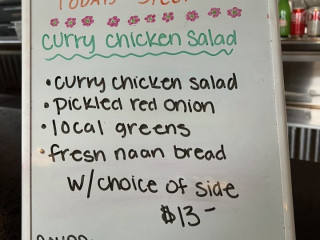 TODAYS
curry chicken salad
• curry chicken salad
• pickled red onion
• local greens
• fresh naan bread
w/choice of side
$13-